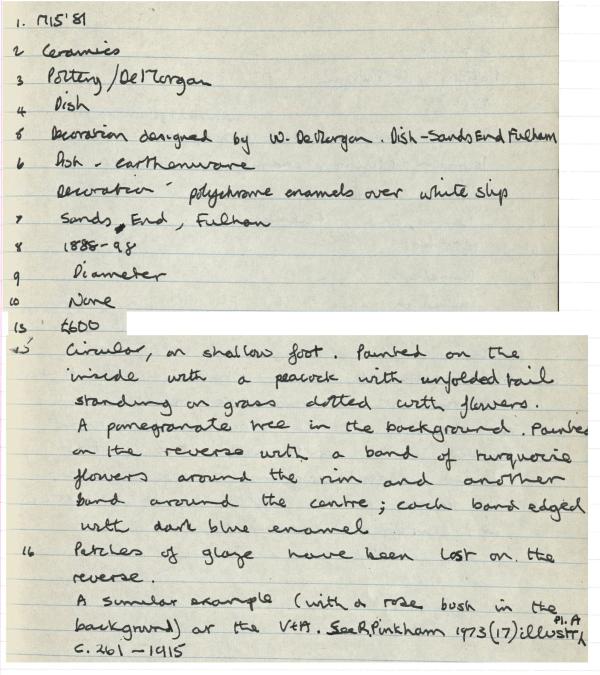 1. M15'81
2 Ceramics
3 Pottery/DeMorgan
4 Dish
5 Decoration designed by W. DeMorgan. Dish - Sands End Fulham
6 Dish - earthenware
Decoration - polychrome enamels over white slip
7 Sands End, Fulham
8 1888-98
9 Diameter
10 None
13 £600
15 Circular, on shallow foot. Painted on the
inside with a peacock with unfolded tail
standing on grass dotted with flowers.
A pomegranate tree in the background. Painted
on the reverse with a band of turquoise
flowers around the rim and another
band around the centre; each band edged
with dark blue enamel
16 Patches of glaze have been lost on the
reverse.
A similar example (with a rose bush in the
background) at the V&A. See R. Pinkham 1973 (17) illustr. Pl. A
C. 261 - 1915